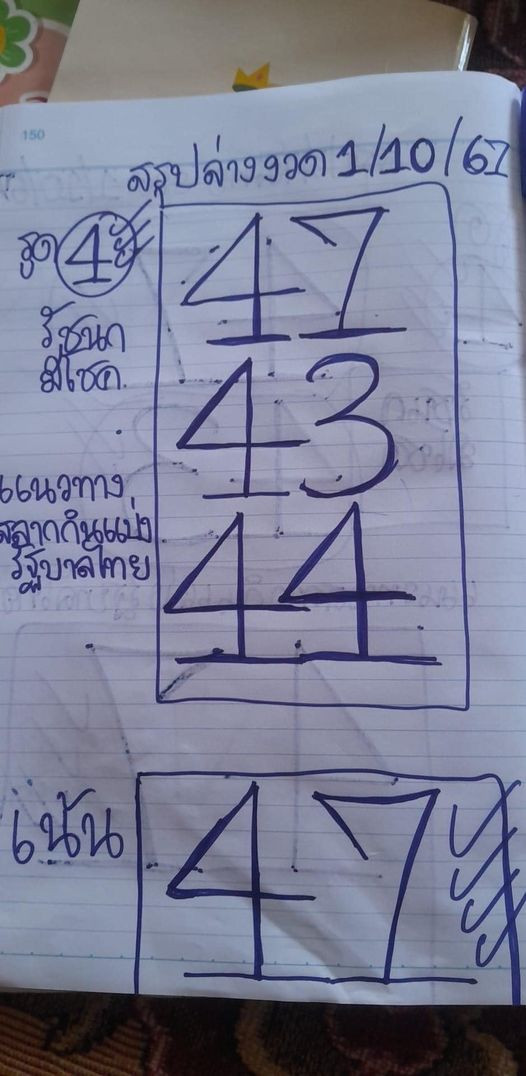 150
สรุปล่างงวด 1/10/67
รูด 4
47
รัชนก
มีโชค
43
แนวทาง
สลากกินแบ่ง
รัฐบาลไทย
44
เน้น
47